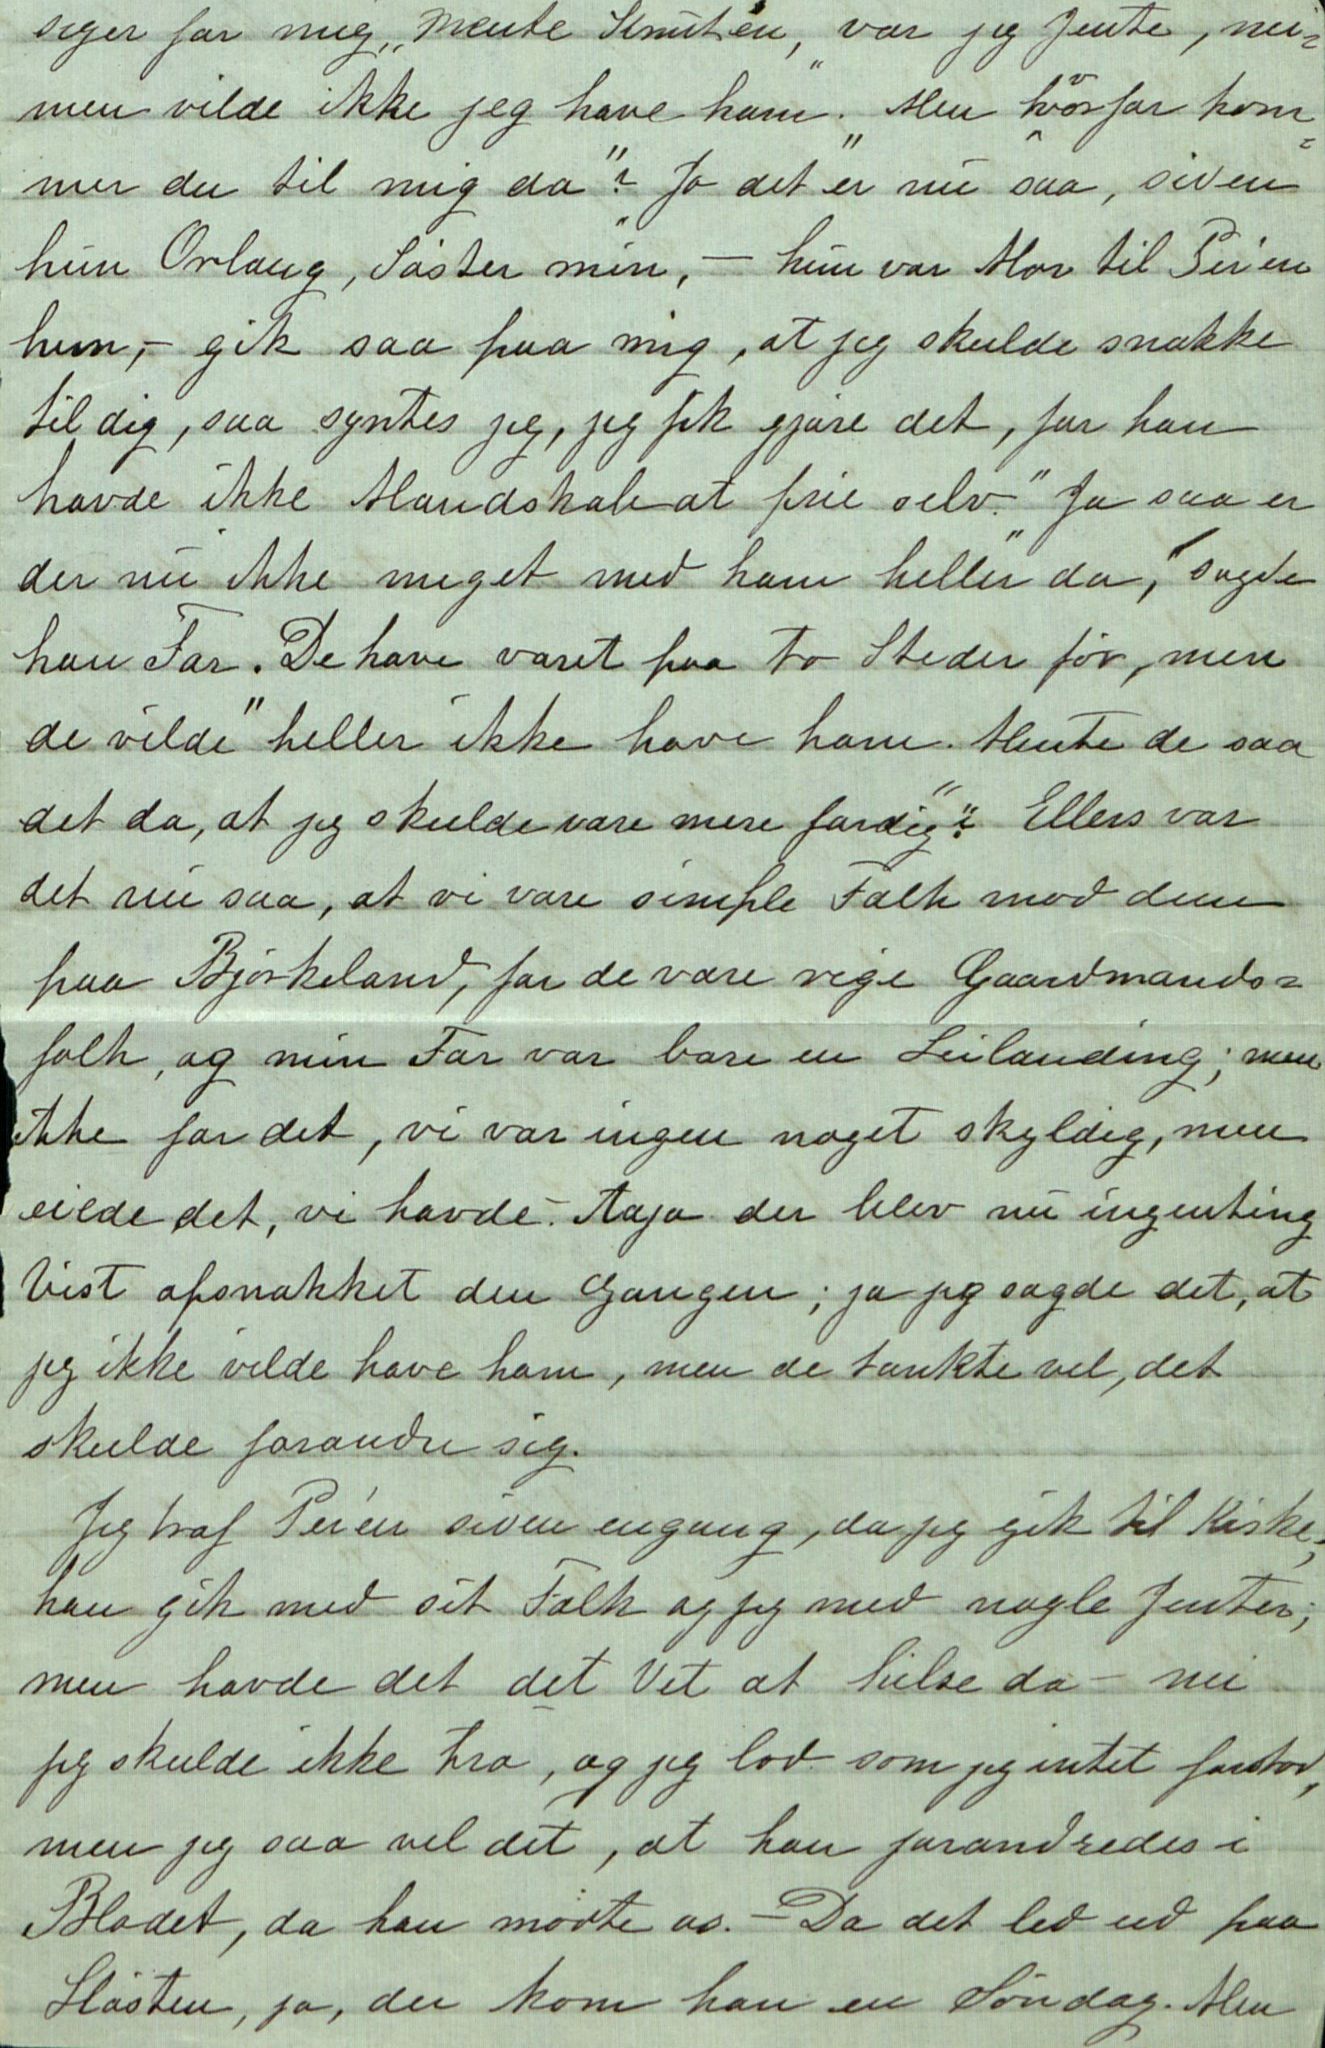 siger for mig," mente Knut'en, "var jeg Jente, nu=
men vilde ikke jeg have ham." "Men hvorfor kom=
mer du til mig da"? "Jo det er nu saa, siden
hun Orlaug, Søster min, — hun var Mor til Per'en
hun, – gik saa paa mig, at jeg skulde snakke
til dig, saa syntes jeg, jeg fik gjøre det, for han
havde ikke Mandskab at frie selv." "Ja saa er
der nu ikke meget med ham heller da," sagde
han Far. "De have været paa to Steder før, men
de vilde heller ikke have ham. Mente de saa
det da, at jeg skulde være mere færdig"? Ellers var
det nu saa, at vi vare simple Folk mod dem
paa Bjørkeland, for de vare rige Gaardmands=
folk, og min Far var bare en Leilænding; men
ikke for det, vi var ingen noget skyldig, men
eiede det, vi havde. – Aaja der blev nu ingenting
Vist afsnakket den Gangen; ja jeg sagde det, at
jeg ikke vilde have ham, men de tænkte vel, det
skulde forandre sig.
Jeg traf Per'en siden engang, da jeg gik til Kirke;
han gik med sit Folk og jeg med nogle Jenter;
men havde det det Vet at hilse da – nei
jeg skulde ikke tro, og jeg lod som jeg intet forstod,
men jeg saa vel det, at han forandredes i
Blodet, da han mødte os. – Da det led ud paa
Høsten, ja, der kom han en Søndag. Men